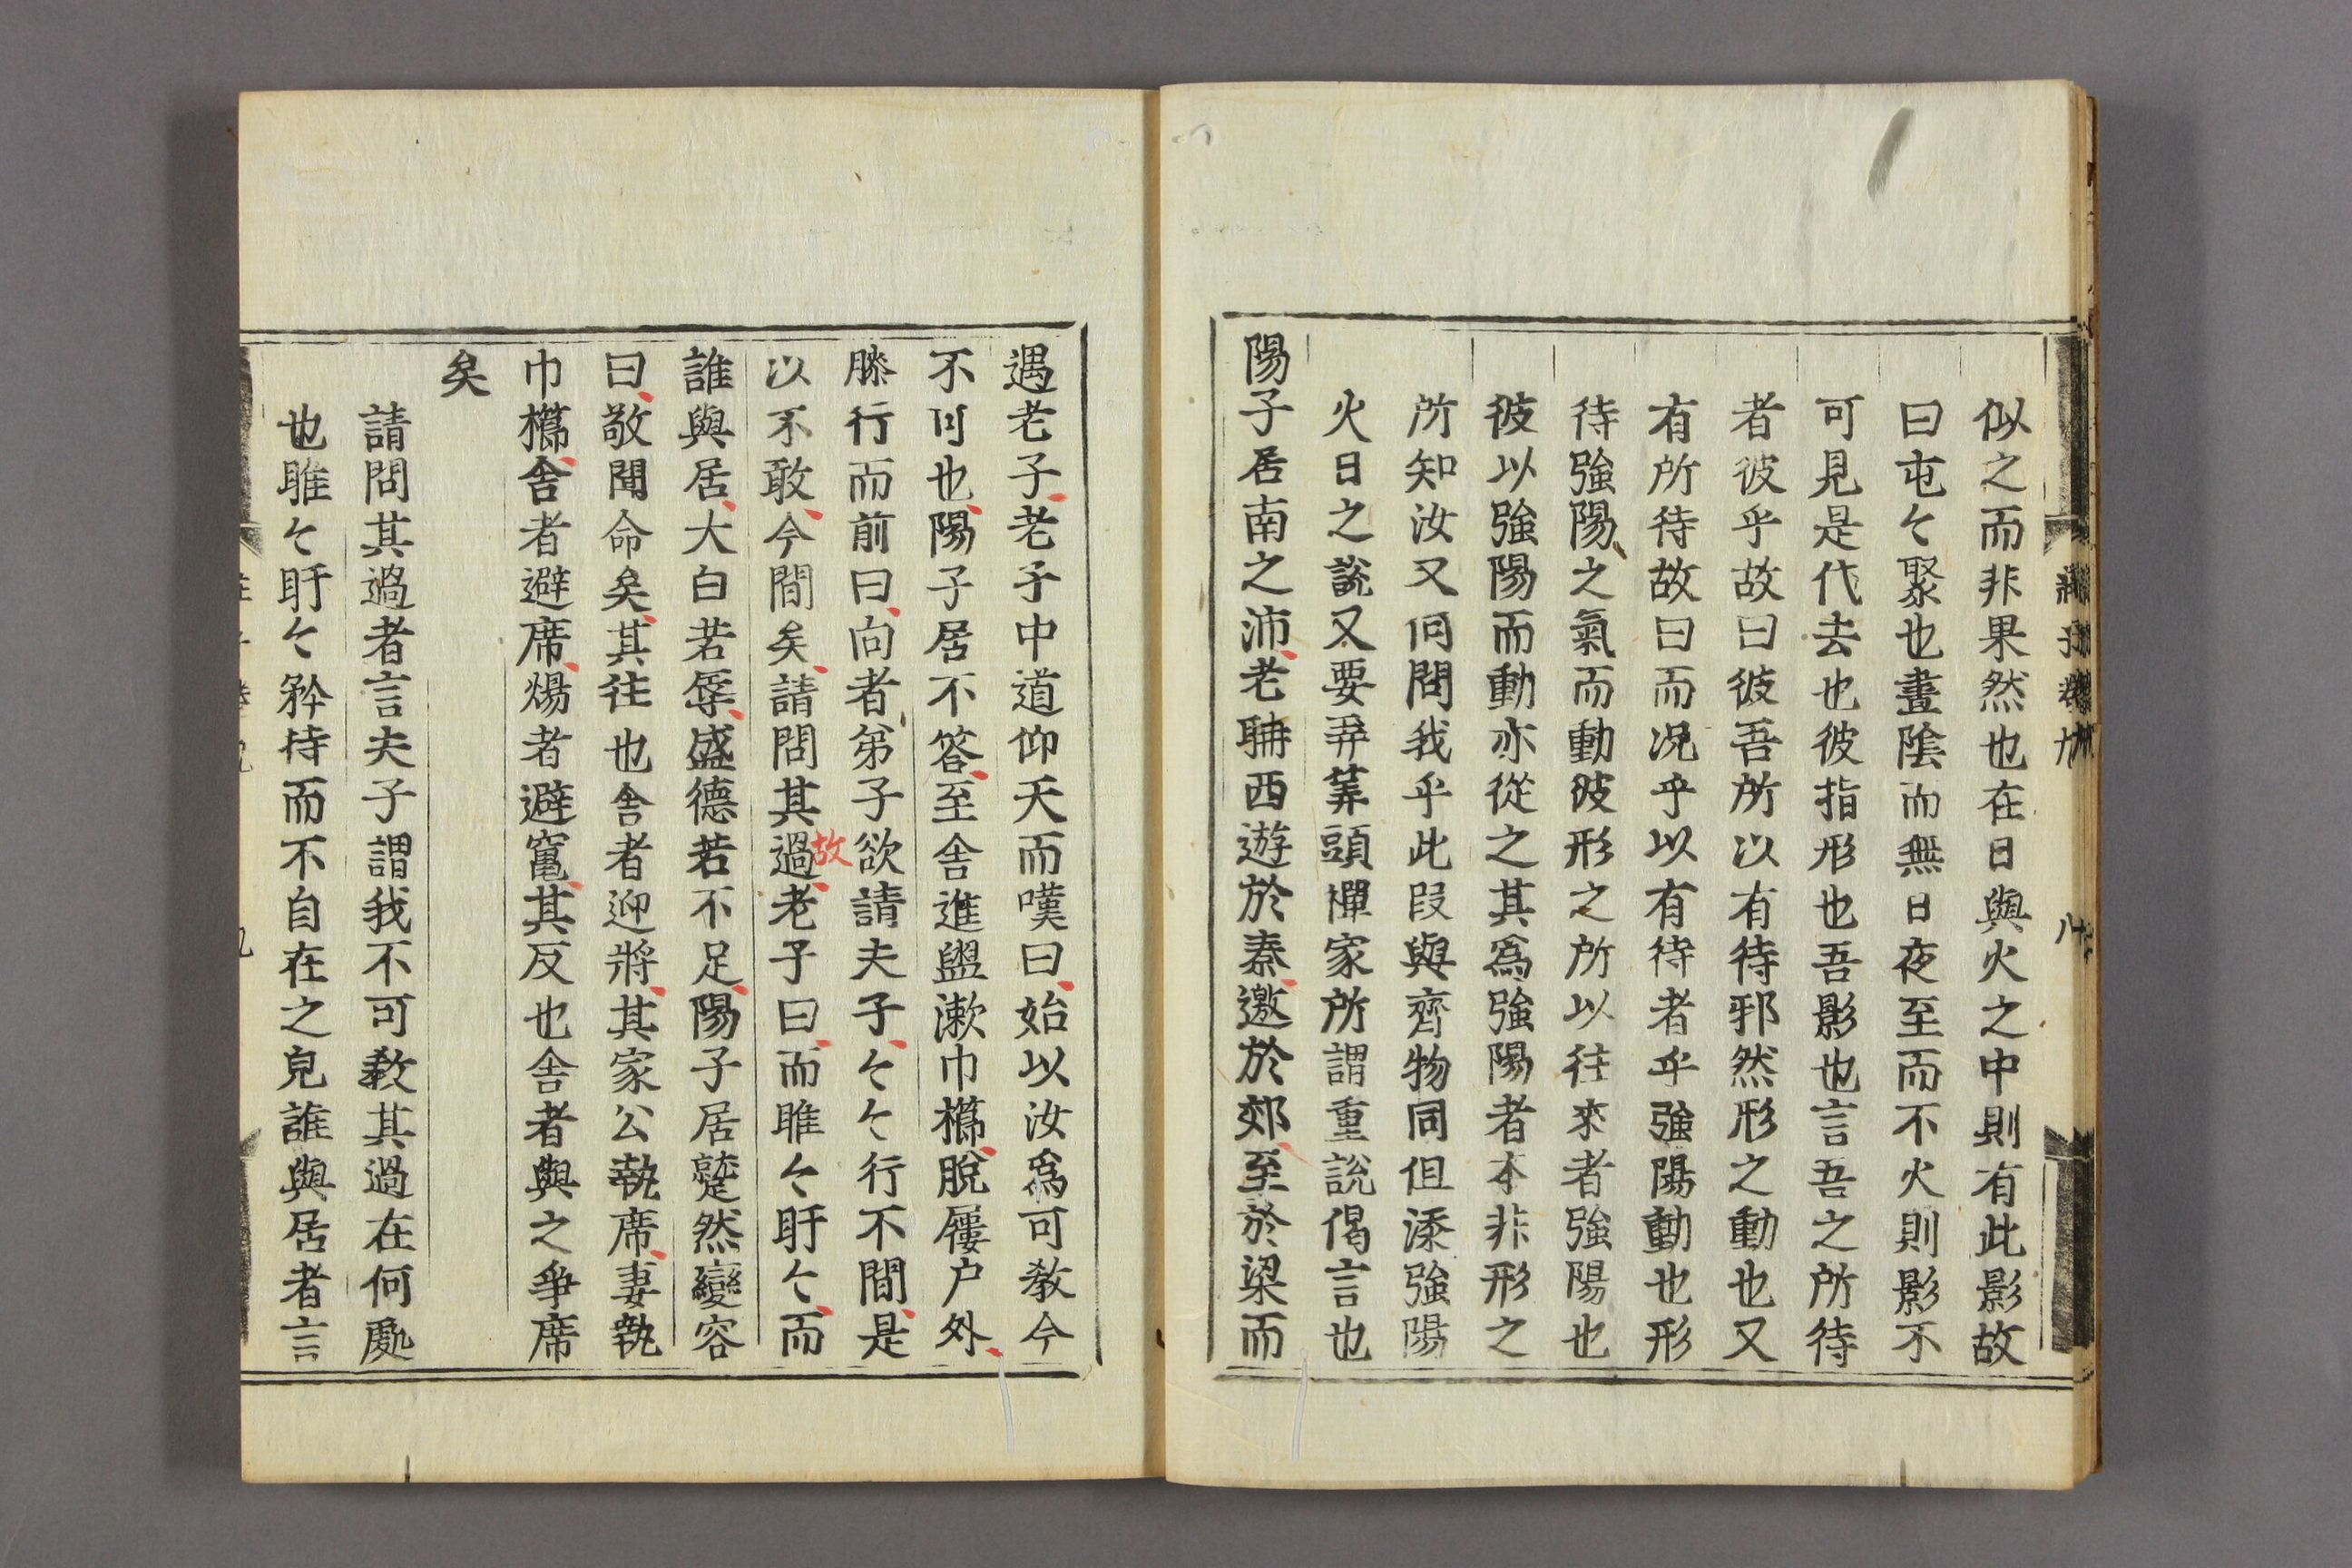 似之而非果然也在日與火之中則有此影故
曰屯々聚也晝陰而無日夜至而不火則影不
可見是代去也彼指形也吾影也言吾之所待
者彼乎故曰彼吾所以有待邪然形之動也又
有所待故曰而况乎以有待者乎強陽動也形
待強陽之氣而動彼形之所以往來者強陽也
彼以強陽而動亦從之其爲強陽者本非形之
所知汝又何問我乎此段與齊物同但添強陽
火日之說又要弄筭頭禪家所謂重說偈言也
陽子居南之沛老聃西遊於秦邀於郊至於梁而
遇老子老子中道仰天而嘆曰始以汝爲可教今
不可也陽子居不答至舍進盥漱巾櫛脫屨户外
膝行而前曰向者弟子欲請夫子々々行不間是
以不敢今間矣請問其過老子曰而睢々盱々而
故
誰與居大白若辱盛德若不足陽子居蹵然變容
曰敬聞命矣其往也舍者迎將其家公執席妻執
巾櫛舍者避席煬者避竈其反也舍者與之爭席
矣
請問其過者言夫子謂我不可教其過在何處
也睢々盱々矜持而不自在之皃誰與居者言